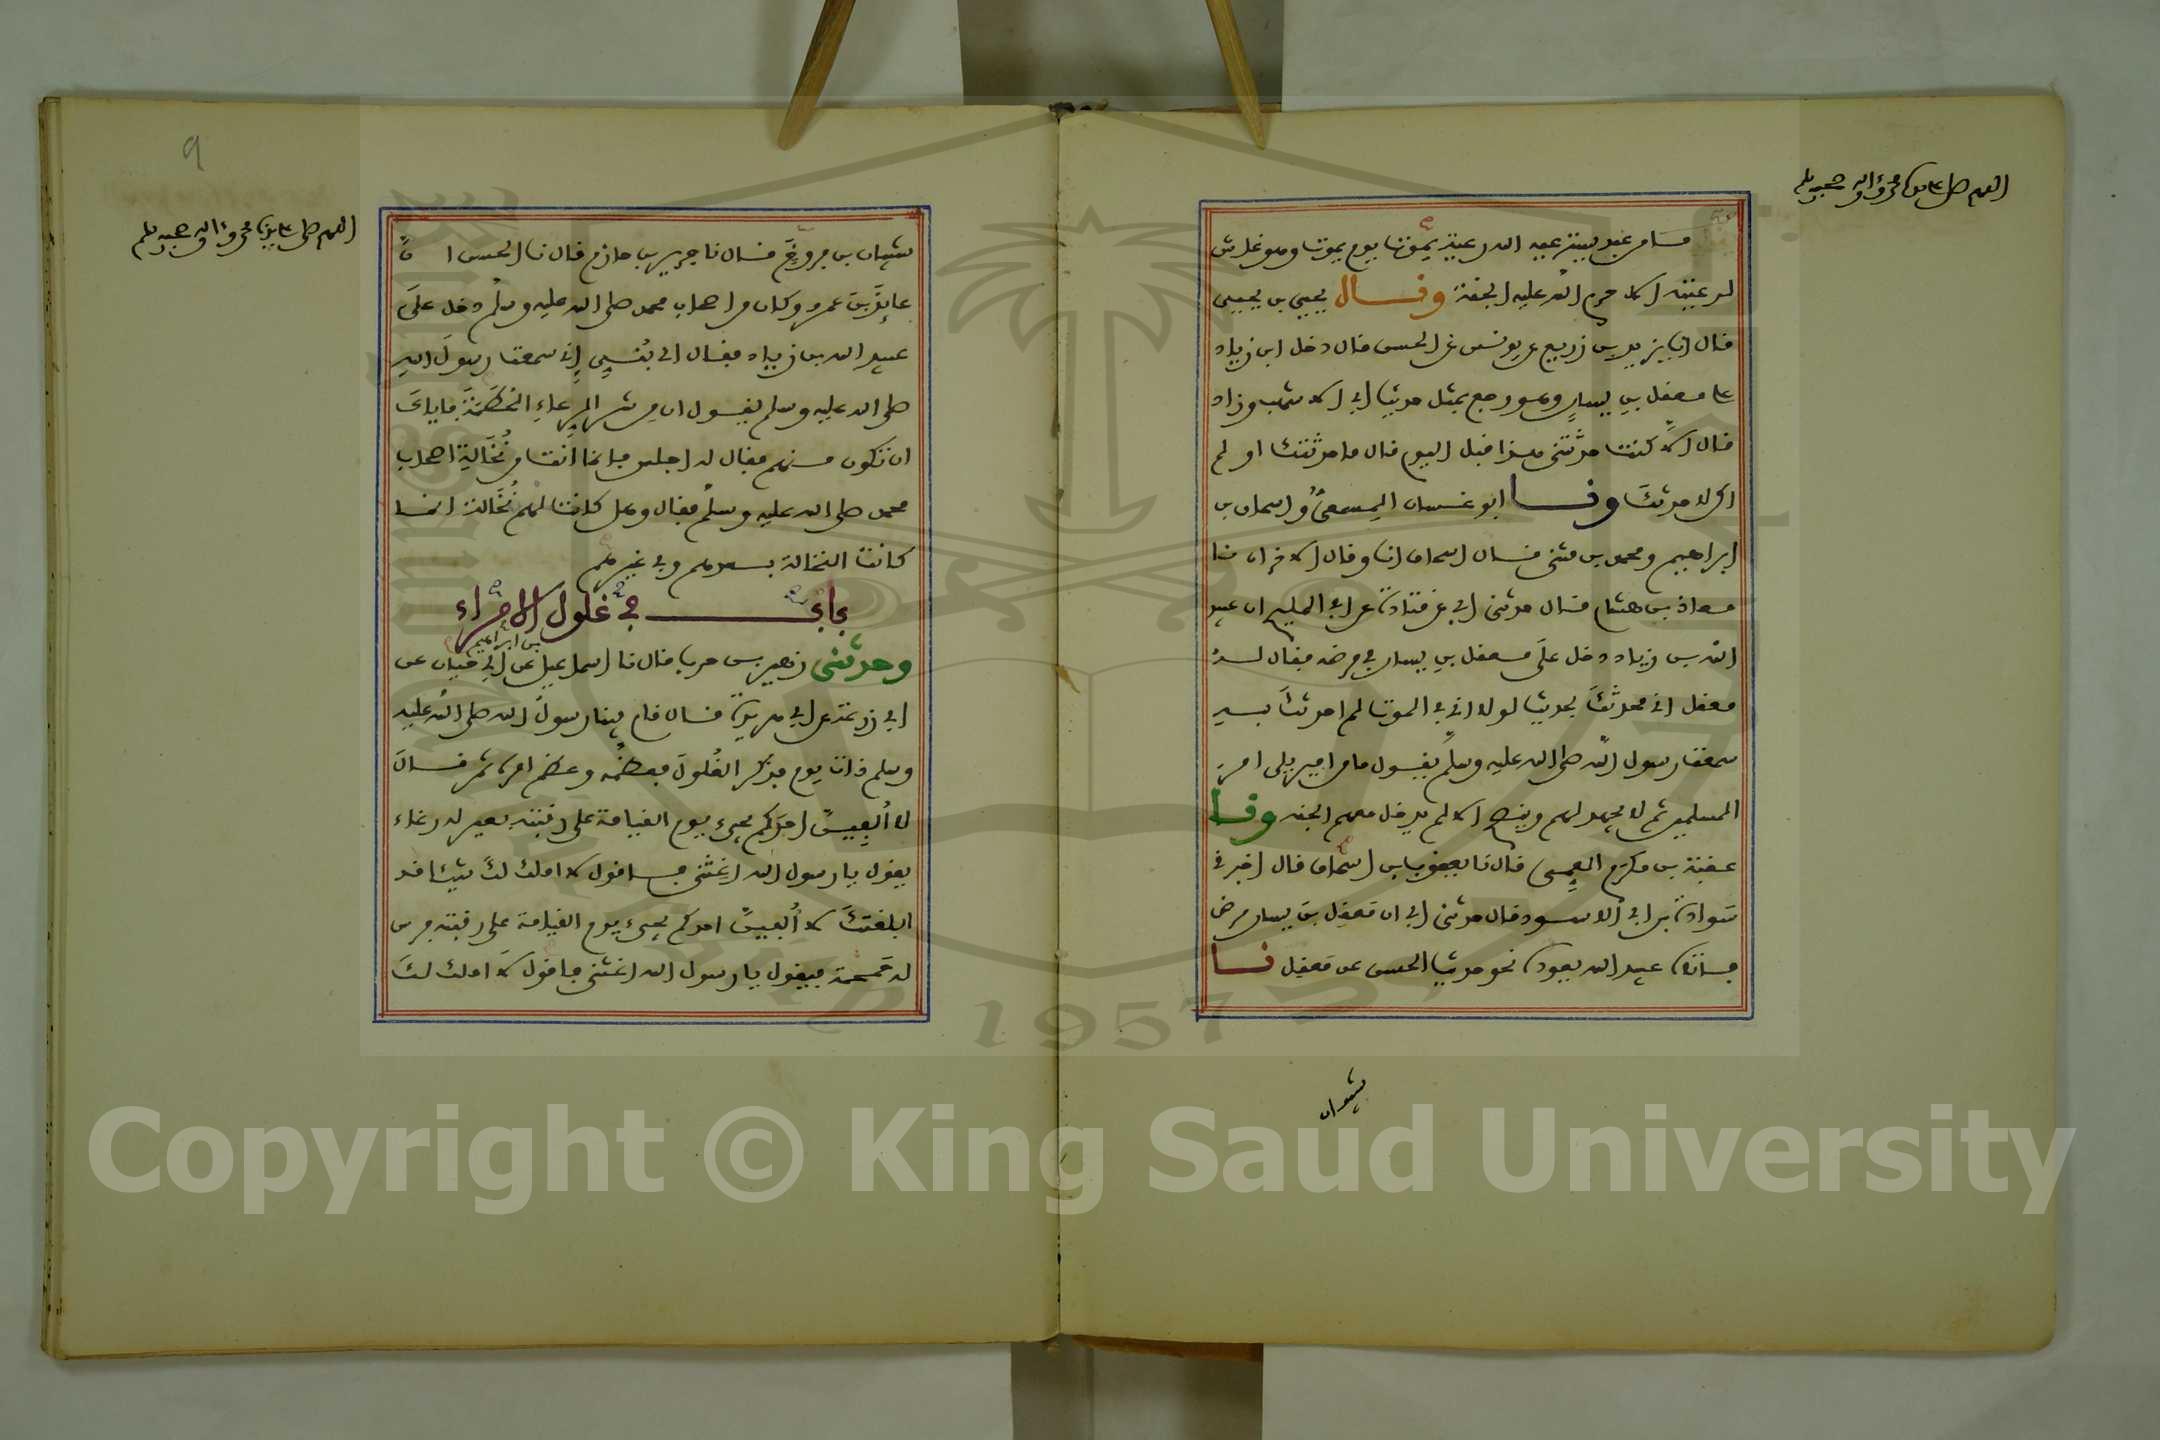 اللهم صل على سيدنا محمد وءاله وصحبه وسلم
ما من عبد يسترعيه الله رعية يموت يوم يموت وهو غاش
لرعيته الا حرم الله عليه الجنة وقال يحيى بن يحيى
قال انا يزيد بن زريع عن يونس عن الحسن قال دخل ابن زياد
على معقل بن يسار وهو وجع بمثل حديث ابي الاشهب وزاد
قال الا كنت حدثتني هذا قبل اليوم قال ما حدثتك او لم
اكن لاحدثك وقا ابو غسان المسمعي واسحاق بن
ابراهيم ومحمد بن مثنى قال اسحاق انا وقال الاخران نا
معاذ بن هشام قال حدثني ابي عن قتادة عن ابي المليح ان عبيد
الله بن زياد دخل على معقل بن يسار في مرضه فقال له
معقل اني محدثك بحديث لولا اني في الموت لم احدثك به
سمعت رسول الله صلى الله عليه وسلم يقول ما من امير يلي امر
المسلمين ثم لا يجهد لهم وينصح الا لم يدخل معهم الجنة وقا
عقبة بن مكرم العمي قال نا يعقوب بن اسحاق قال اخبرني
سوادة بن ابي الاسود قال حدثني ابي ان معقل بن يسار مرض
فاتاه عبيد الله يعوده نحو حديث الحسن عن معقل نا
شيبان
٩
اللهم صل على سيدنا محمد وءاله وصحبه وسلم
شيبان بن فروخ قال نا جرير بن حازم قال نا الحسن ان
عايذ بن عمرو وكان من اصحاب محمد صلى الله عليه وسلم دخل على
عبيد الله بن زياد فقال اي بني اني سمعت رسول الله
صلى الله عليه وسلم يقول ان من شر الرعاء الحطمة فاياك
ان تكون منهم فقال له اجلس فانما انت من نخالة اصحاب
محمد صلى الله عليه وسلم فقال وهل كانت لهم نخالة انما
كانت النخالة بعدهم وفي غيرهم
باب في غلول الامراء
وحدثني زهير بن حرب قال نا اسماعيل بن ابراهيم عن ابي حيان عن
ابي زرعة عن ابي هريرة قال قام فينا رسول الله صلى الله عليه
وسلم ذات يوم فذكر الغلول فعظمه وعظم امره ثم قال
لا الفين احدكم يجيء يوم القيامة على رقبته بعير له رغاء
يقول يا رسول الله اغثني فاقول لا املك لك شيئا قد
ابلغتك لا الفين احدكم يجيء يوم القيامة على رقبته فرس
له حمحمة فيقول يا رسول الله اغثني فاقول لا املك لك
1957
Copyright © King Saud University